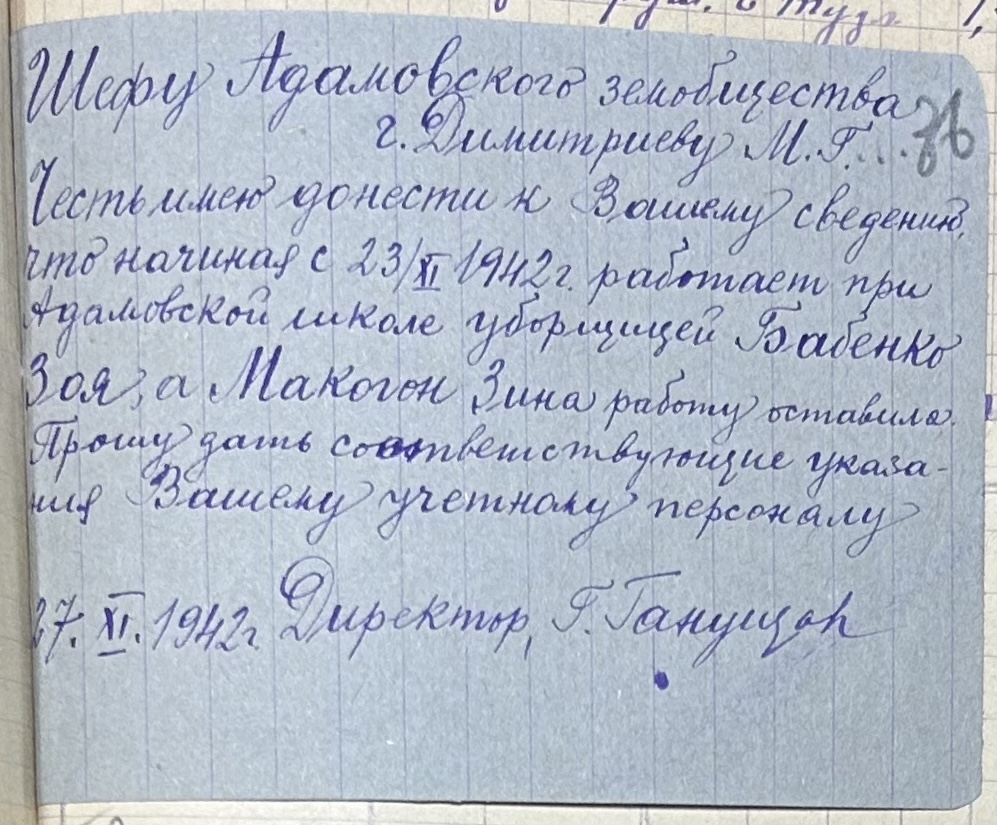 Шефу Адамовского земобщества
г. Димитриеву М.Г. . . .
Честь имею донести к Вашему сведению,
что начиная с 23/XI 1942 г. работает при
Адамовской школе уборщицей Бабенко
Зоя, а Макогон Зина работу оставила.
Прошу дать соответствующие указа-
ния Вашему учетному персоналу
27. XI. 1942 г. Директор, Г.